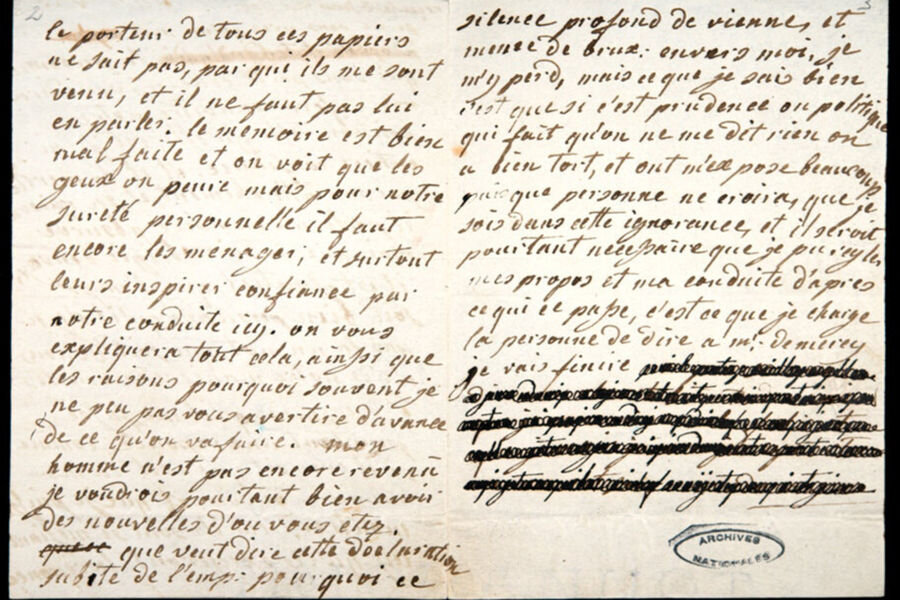 2
le porteur de tous ces papiers
ne sait pas, par qui ils me sont
venu, et il ne faut pas lui
en parler. le memoire est bien
mal faite et on voit que les
geux on peure mais pour notre
sureté personnelle il faut
encore les menager, et surtout
leurs inspirer confiance par
notre conduite icy. on vous
expliquera tout cela, ainssi que
les raisons pourquoi souvent je
ne peu pas vous avertire d'avance
de ce qu'on va faire. mon
homme n'est pas encore revenu
je voudrois pourtant bien avoir
des nouvelles d'ou vous etez.
que veut dire cette declaration
subite de l'emp: pourquoi ce
3
silence profond de vienne, et
meme de brux: envers moi, je
m'y perd, mais ce que je sais bien
c'est que si c'est prudence ou politique
qui fait qu'on ne me dit rien on
a bien tort, et ont m'expose beaucoup
puisque personne ne croira, que je
sois dans cette ignorance, et il seroit
pourtant necessaire que je puisse regler
mes propos et ma conduite d'apres
ce qui ce passe, c'est ce que je charge
la personne de dire a mr. de mercy
je vais finire
ARCHIVES
NATIONALES